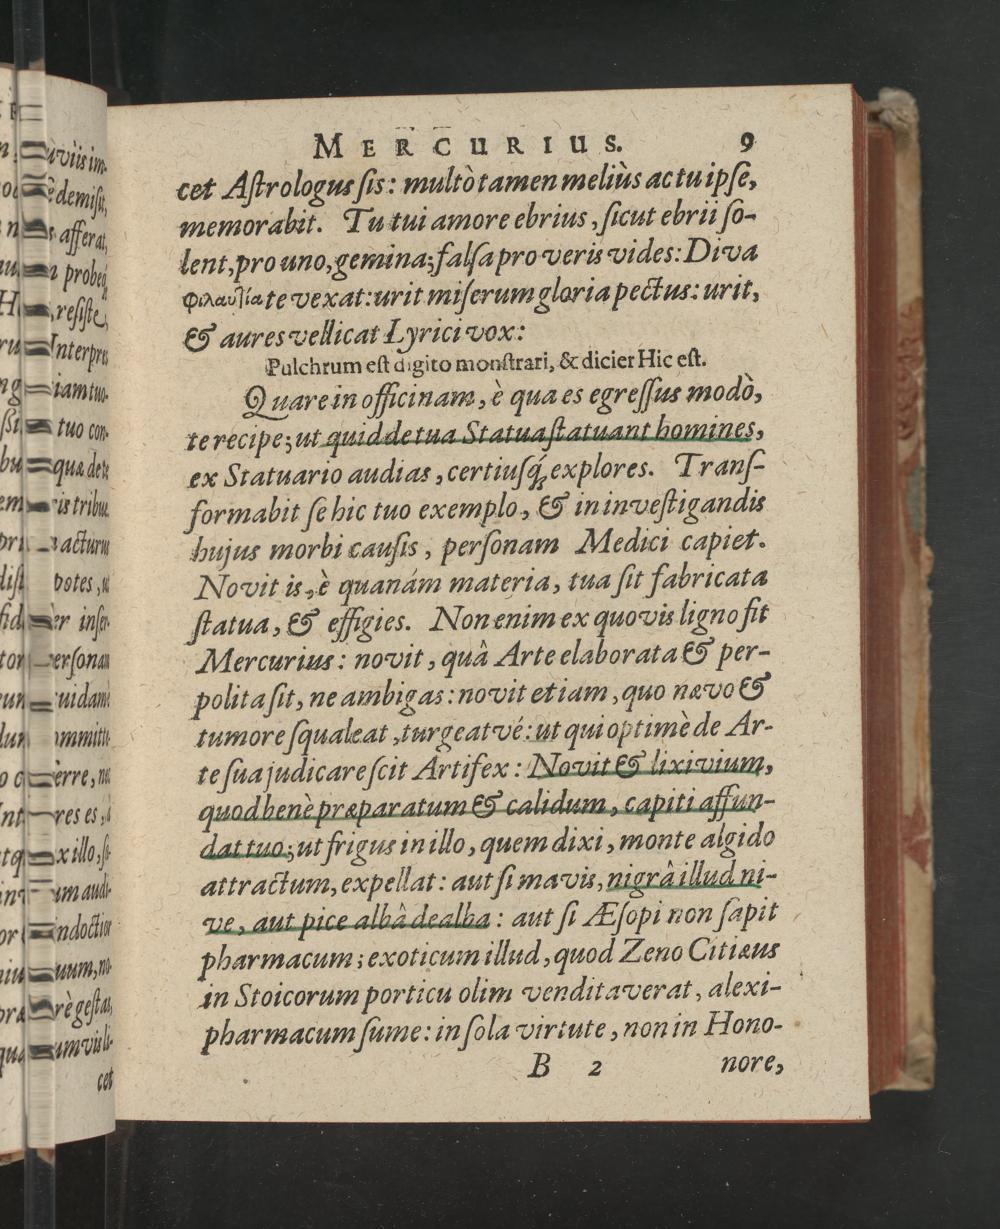 MERCURIUS. 9
cet Astrologus sis: multò tamen meliùs ac tu ipse,
memorabit. Tu tui amore ebrius, sicut ebrii so-
lent, pro uno, gemina; falsa pro veris vides: Diva
Φιλαυτία te vexat: urit miserum gloria pectus: urit,
& aures vellicat Lyrici vox:
Pulchrum est digito monstrari, & dicier Hic est.
Quare in officinam, è qua es egressus modò,
te recipe; ut quid de tua Statua statuant homines,
ex Statuario audias, certiusq́; explores. Trans-
formabit se hic tuo exemplo, & in investigandis
hujus morbi causis, personam Medici capiet.
Novit is, è quanám materia, tua sit fabricata
statua, & effigies. Non enim ex quovis ligno fit
Mercurius: novit, quâ Arte elaborata & per-
polita sit, ne ambigas: novit etiam, quo nævo &
tumore squaleat, turgeatvé: ut qui optimè de Ar-
te sua judicare scit Artifex: Novit & lixivium,
quod benè præparatum & calidum, capiti affun-
dat tuo; ut frigus in illo, quem dixi, monte algido
attractum, expellat: aut si mavis, nigrâ illud ni-
ve, aut pice albâ dealba: aut si Æsopi non sapit
pharmacum; exoticum illud, quod Zeno Citiæus
in Stoicorum porticu olim venditaverat, alexi-
pharmacum sume: in sola virtute, non in Hono-
B 2 nore,